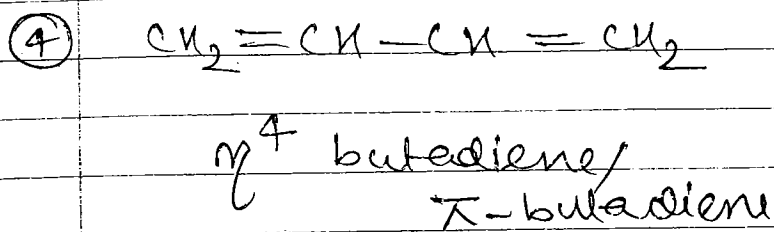 ④ CH₂=CH–CH=CH₂
η⁴ butadiene/
π-butadiene